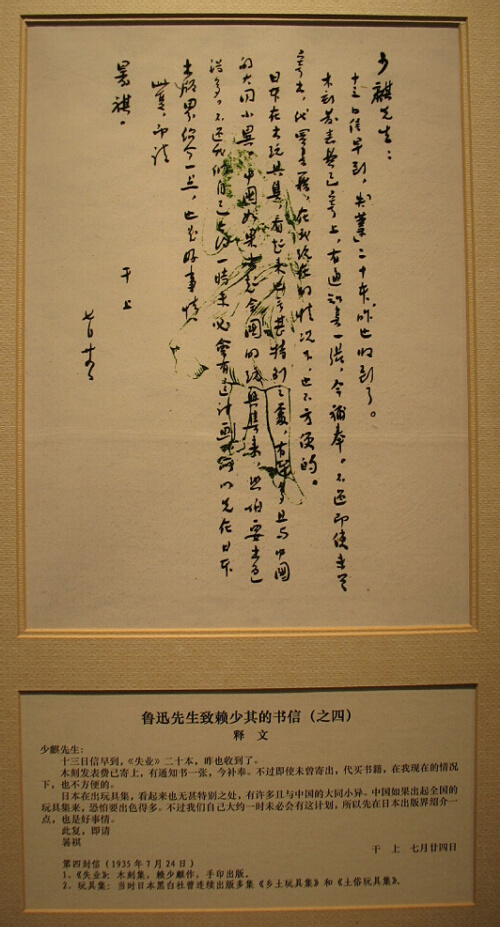 少麒先生：
十三日信早到，《失業》二十本，昨也收到了。
木刻發表費已寄上，有通知書一張，今補奉。不過即使未曾
寄出，代買書籍，在我現在的情況下，也不方便的。
日本在出玩具集，看起来也無甚特别之處，有許多且與中國
的大同小異。中國如果出起全國的玩具集来，恐怕要出色
得多。不過我們自己大約一時未必會有這計畫，所以先在日本
出版界紹介一点，也是好事情。
此复，即請
暑祺。
干上
七月廿四日
鲁迅先生致赖少其的书信（之四）
释文
少麒先生：
十三日信早到，《失业》二十本，昨也收到了。
木刻发表费已寄上，有通知书一张，今补奉。不过即使未曾寄出，代买书籍，在我现在的情况
下，也不方便的。
日本在出玩具集，看起来也无甚特别之处，有许多且与中国的大同小异。中国如果出起全国的
玩具集来，恐怕要出色得多。不过我们自己大约一时未必会有这计划，所以先在日本出版界绍介一
点，也是好事情。
此复，即请
暑祺
干 上 七月廿四日
第四封信（1935年7月24日）
1、《失业》：木刻集，赖少麒作，手印出版。
2、玩具集：当时日本黑白社曾连续出版多集《乡土玩具集》和《土俗玩具集》。